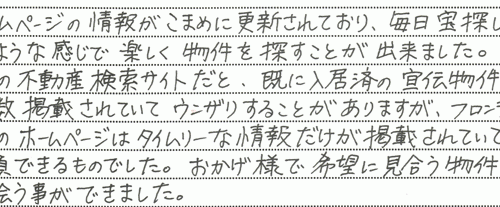 ムページの情報がこまめに更新されており、毎日宝探し
ような感じで楽しく物件を探すことが出来ました。
の不動産検索サイトだと、既に入居済の宣伝物件
数掲載されていてウンザリすることがありますが、フロン
のホームページはタイムリーな情報だけが掲載されていて
頼できるものでした。おかげ様で希望に見合う物件
会う事ができました。